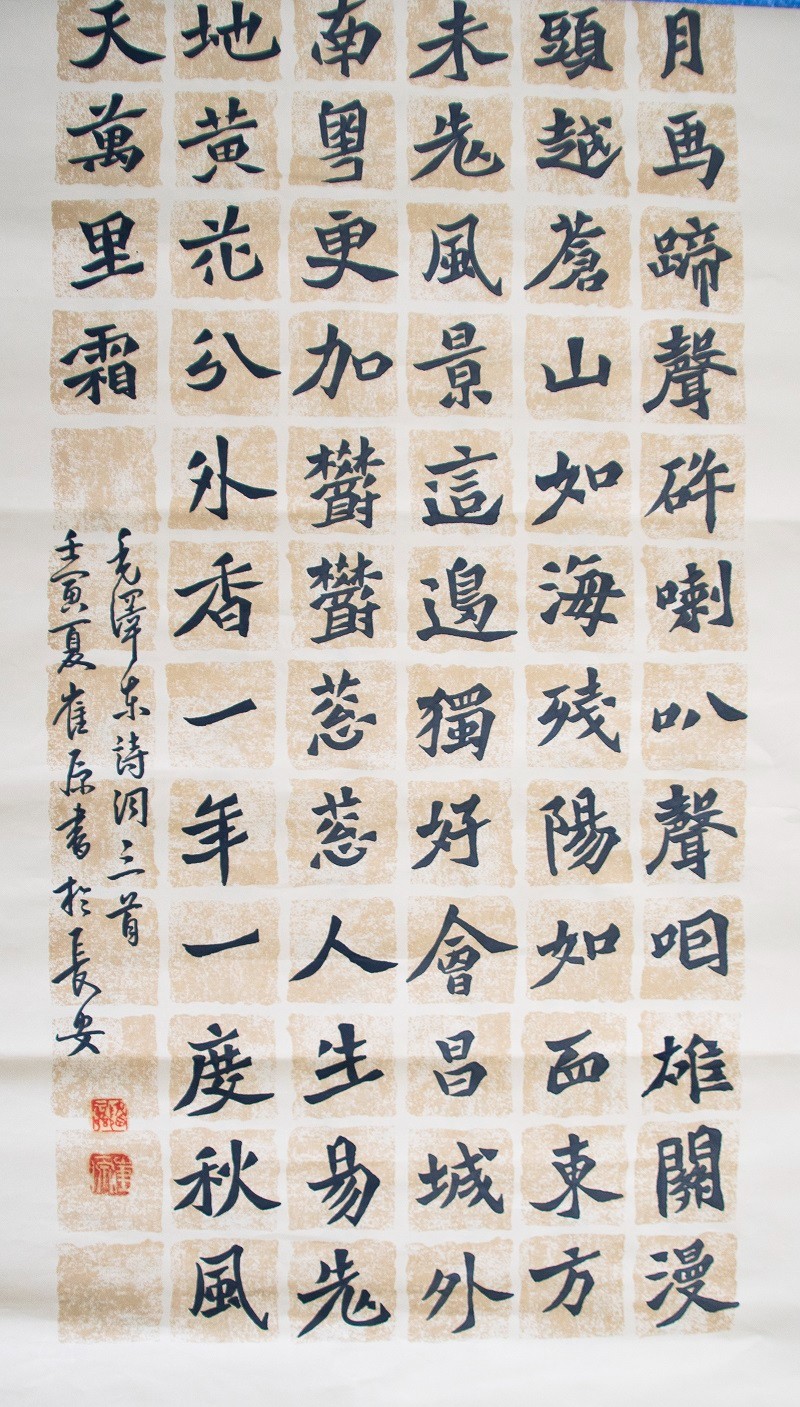 月馬蹄聲碎喇叭聲咽雄關漫
頭越蒼山如海残陽如血東方
未老風景這邊獨好會昌城外
南粵更加鬱鬱蔥蔥人生易老
地黄花分外香一年一度秋風
天萬里霜
毛澤东詩词三首
壬寅夏崔原書於長安